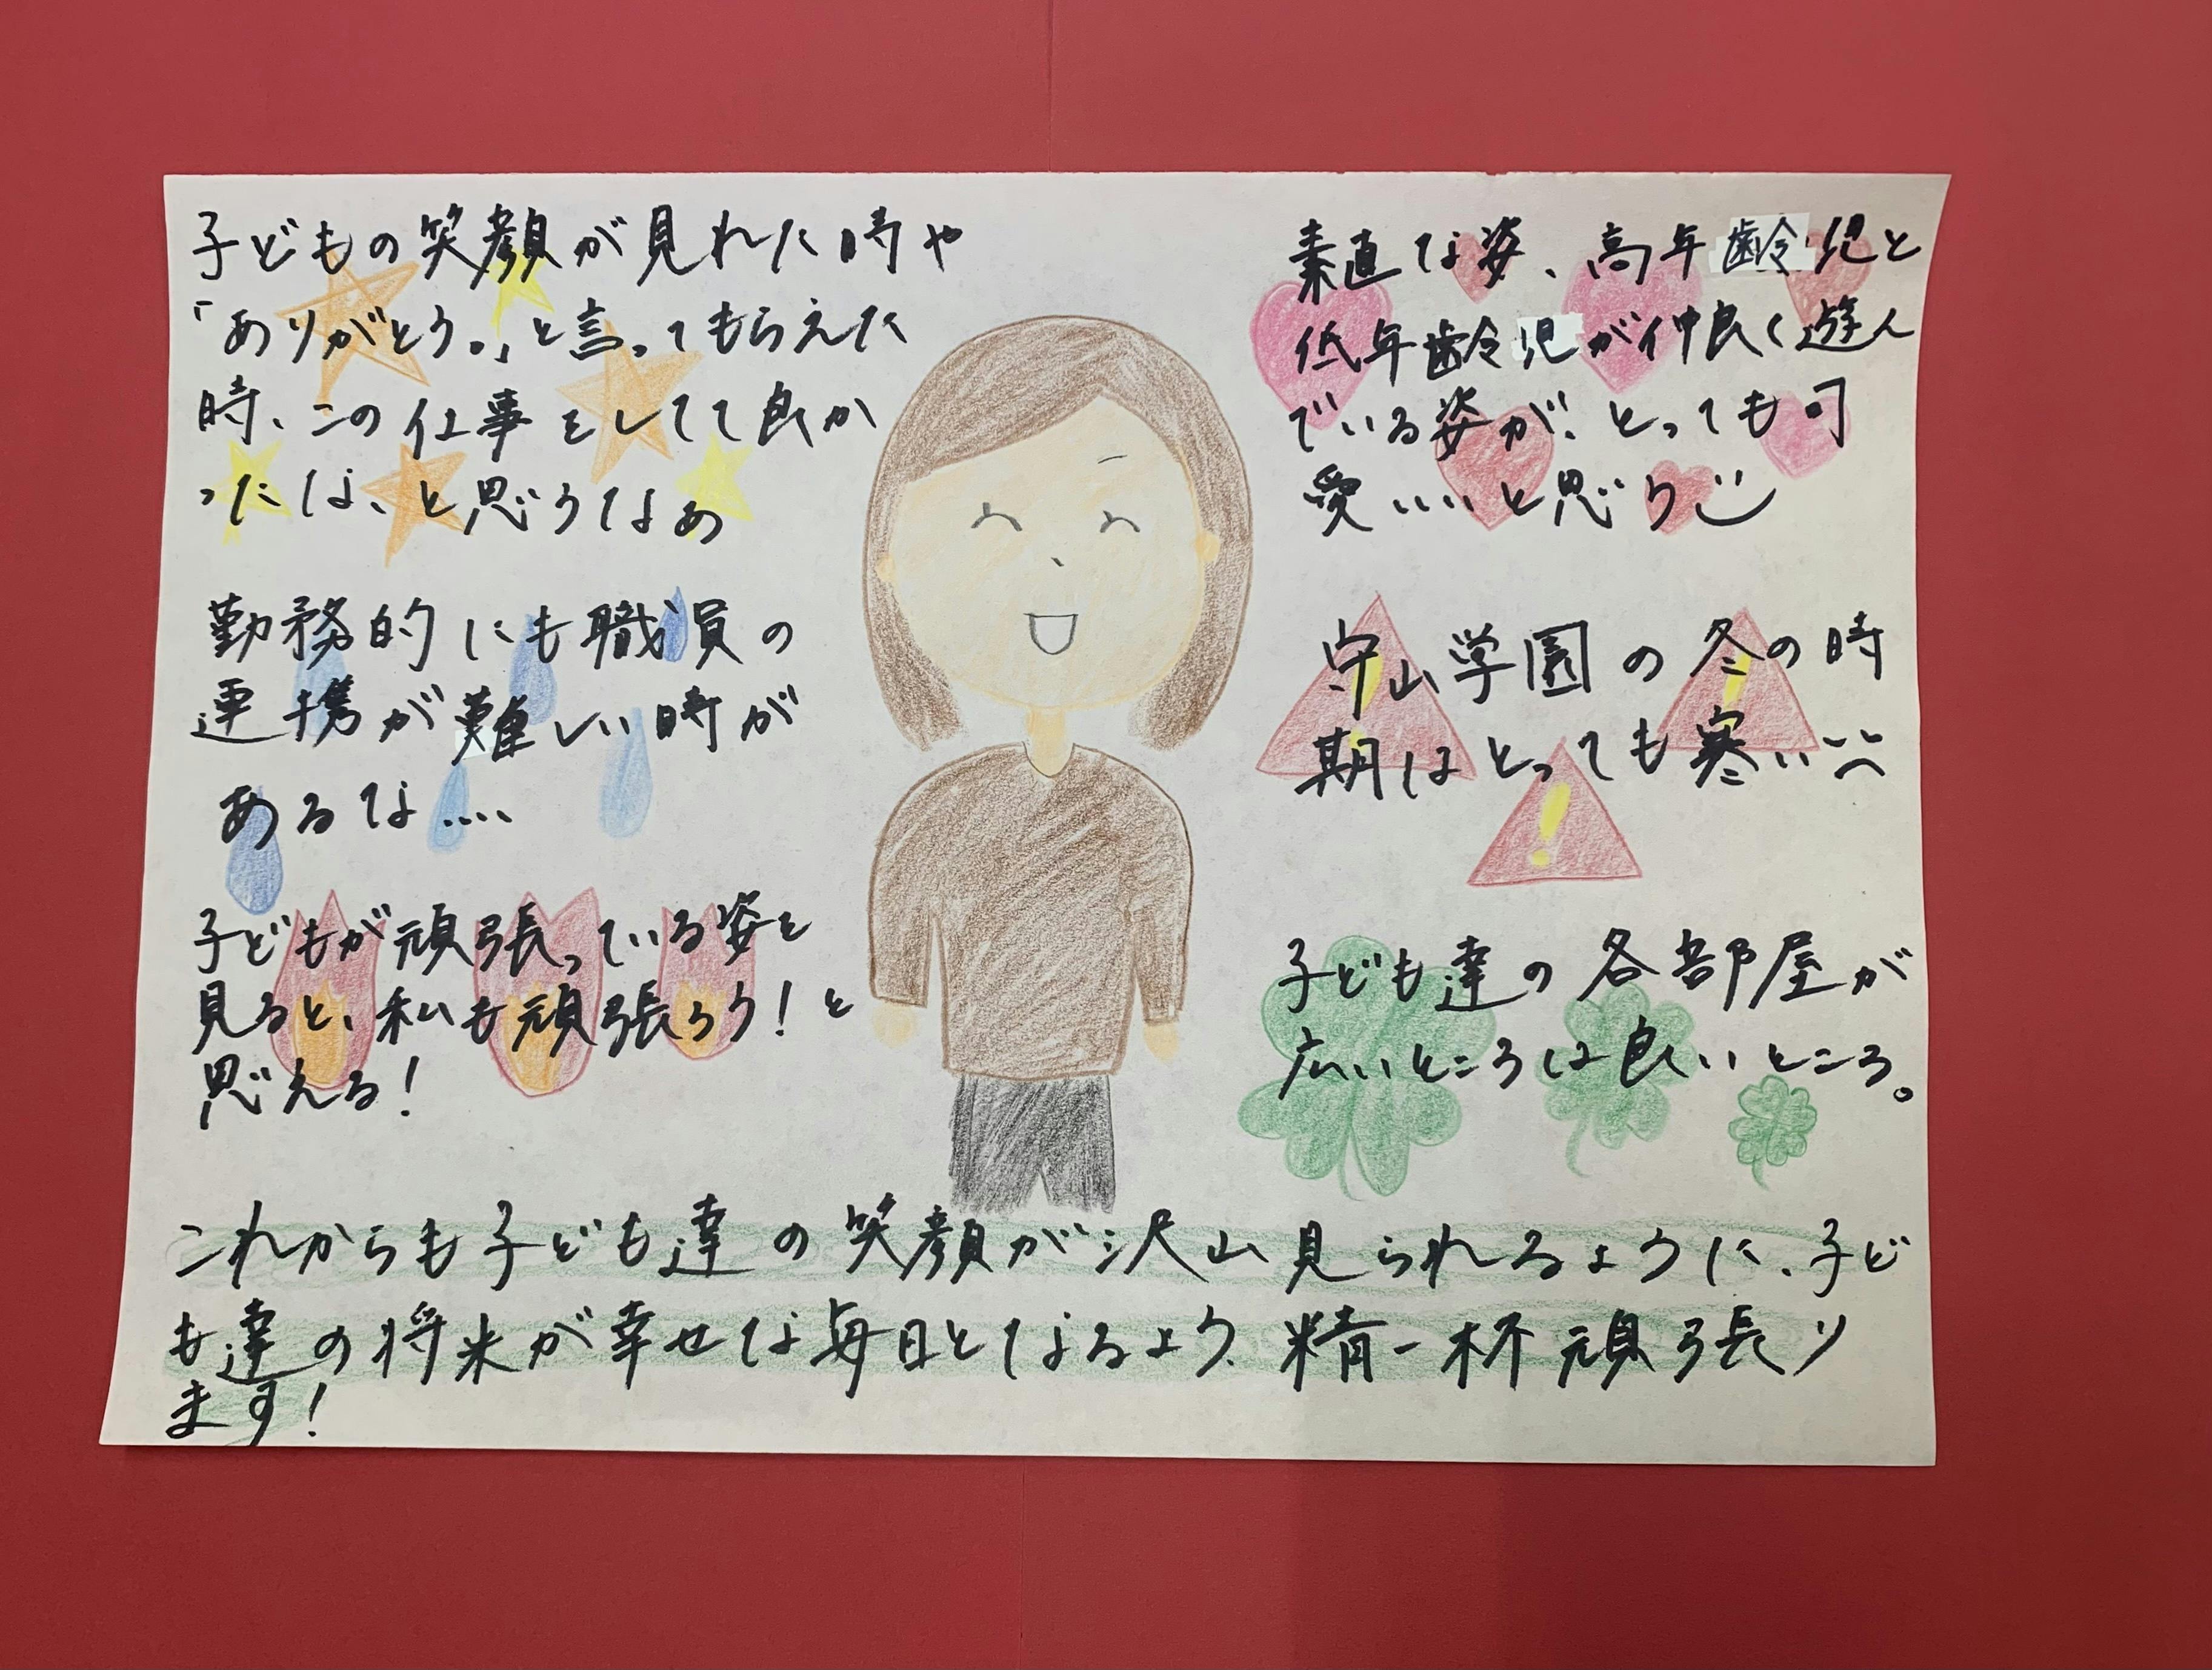 子どもの笑顔が見れた時や
「ありがとう。」と言ってもらえた
時、この仕事をしてて良か
ったな、と思うなぁ
勤務的にも職員の
連携が難しい時が
あるな....
子どもが頑張っている姿を
見ると、私も頑張ろう!と
思える!
素直な姿、高年齢児と
低年齢児が仲良く遊ん
でいる姿が、とっても可
愛いいと思う
守山学園の冬の時
期はとっても寒い
子ども達の各部屋が
広いところは良いところ。
これからも子ども達の笑顔が沢山見られるように、子ど
も達の将来が幸せな毎日となるよう、精一杯頑張り
ます!